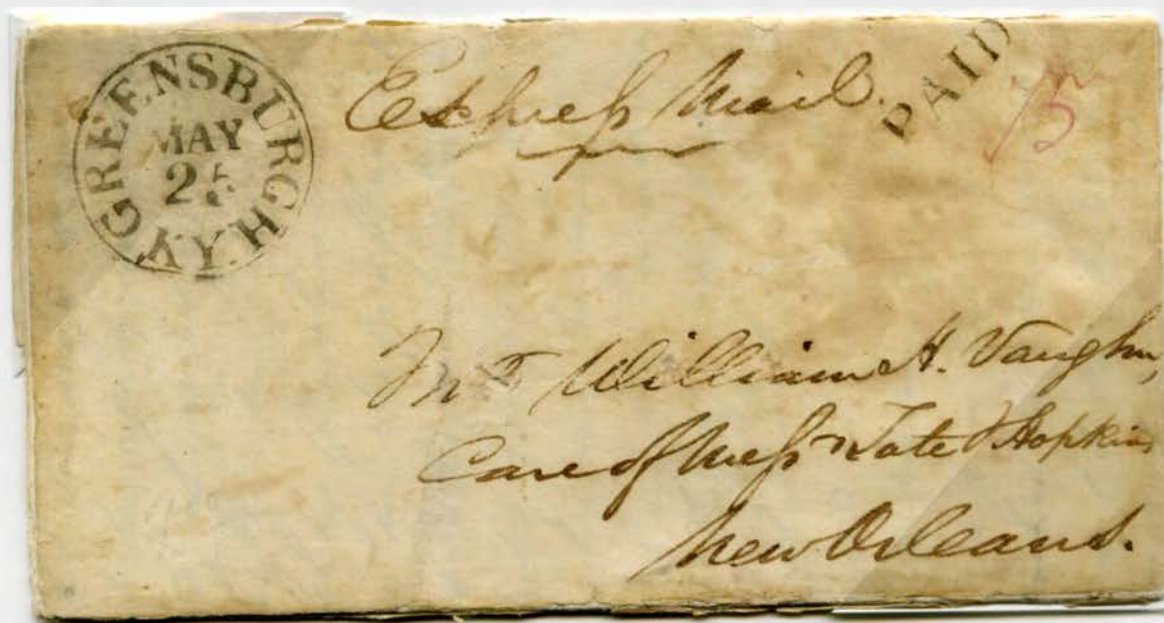 GREENSBURGH.KY
MAY
25
Express Mail.
PAID
75
Mr William H. Vaughn,
Care of Mess Tate & Hopkins
New Orleans.